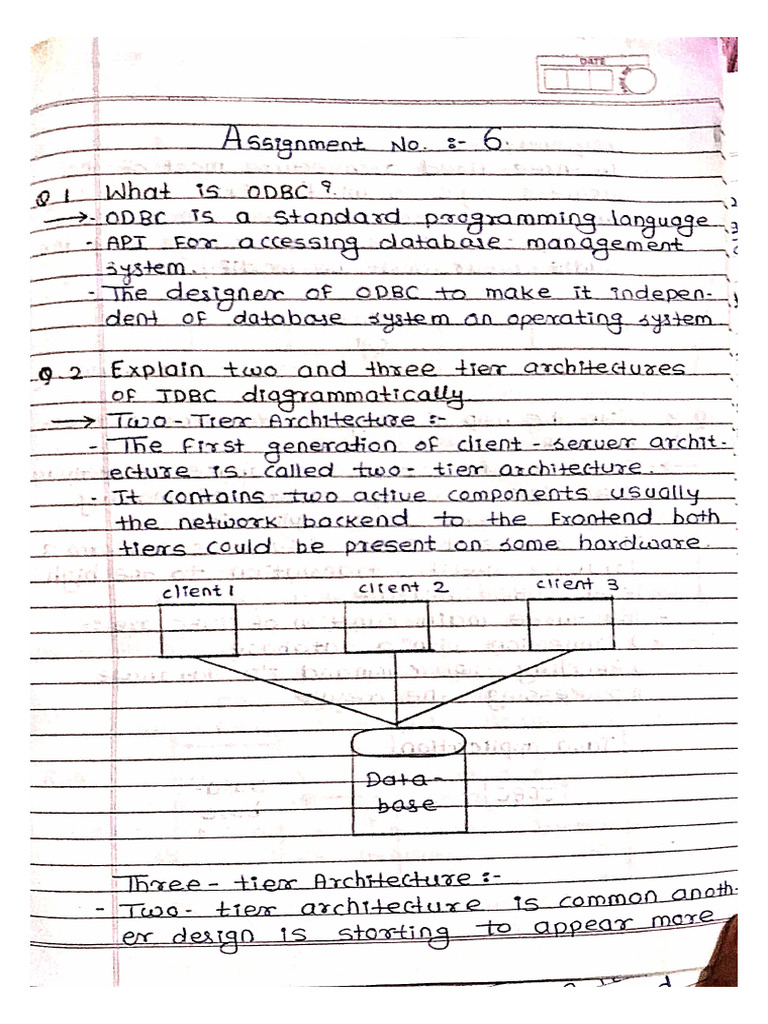 DATE
Assignment No. :- 6.
Q 1 What is ODBC ?
→ - ODBC is a standard programming language
- API For accessing database management
system.
- The designer of ODBC to make it indepen-
dent of database system an operating system
Q 2 Explain two and three tier architectures
of JDBC diagrammatically
→ Two - Tier Architecture :-
- The first generation of client - server archit-
ecture is called two - tier architecture.
- It contains two active components usually
the network backend to the Frontend both
tiers could be present on some hardware.
client 1 client 2 client 3
Data-
base
Three - tier Architecture :-
- Two - tier architecture is common anoth-
er design is storting to appear more